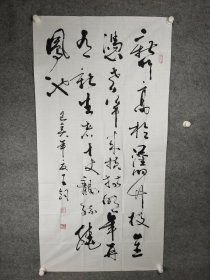 新竹高於舊竹枝全
憑老幹為扶持明年再
有新生者十丈龍孫繞
鳳池
己亥年